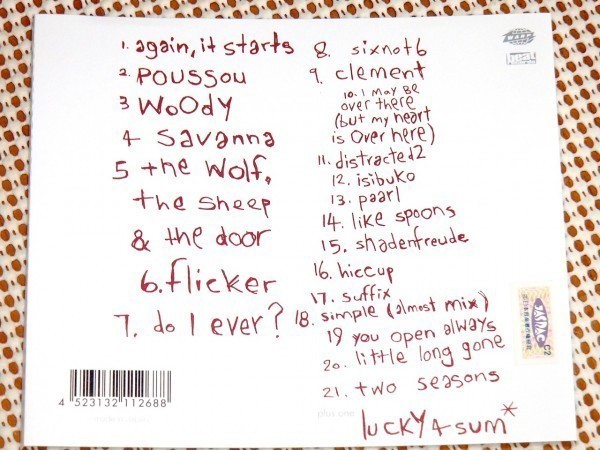 1. again, it starts
2. POUSSOU
3 WOODY
4 Savanna
5 the Wolf,
the sheep
& the door
6. flicker
7. do I ever?
8. sixnot6
9. clement
10. I MAY BE
over there
(but my heart
is over here)
11. distracted2
12. isibuko
13. paarl
14. like spoons
15. shadenfreude
16. hiccup
17. suffix
18. simple (almost mix)
19 you open always
20. little long gone
21. two seasons
lucky 4 sum*
WARP
beat
JASRAC
4 523132 112688
made in Japan